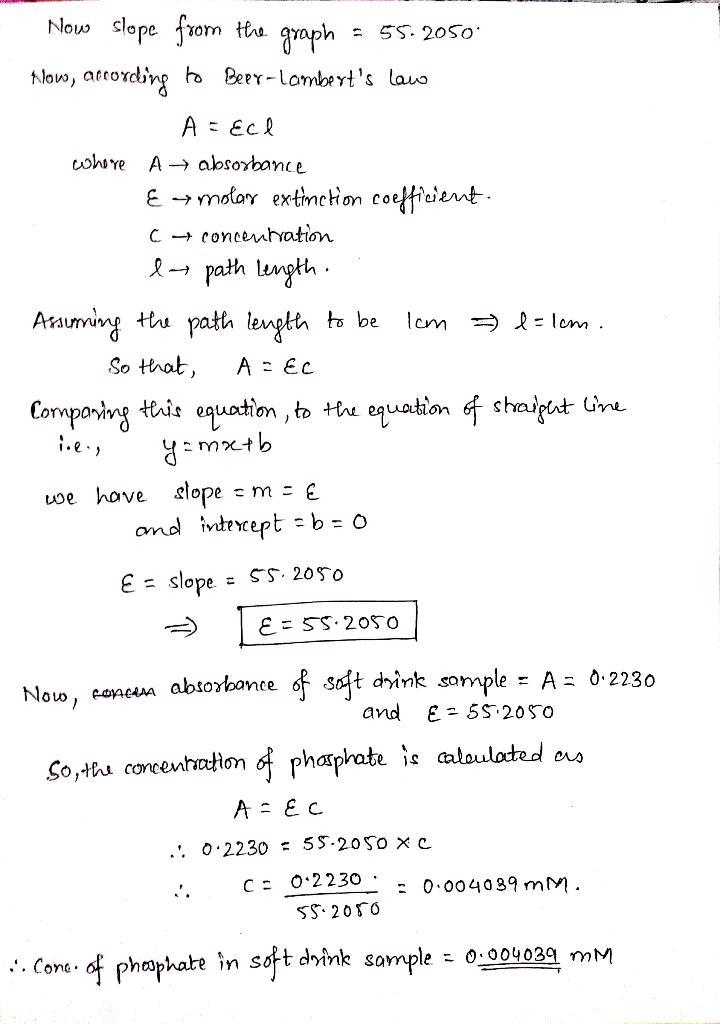 Now slope from the graph = 55.2050.
Now, according to Beer-Lambert's law
A = εcl
where A → absorbance
ε → molar extinction coefficient.
C → concentration
l → path length.
Assuming the path length to be 1cm ⇒ l = 1cm.
So that, A = εc
Comparing this equation, to the equation of straight line
i.e., y = mx + b
we have slope = m = ε
and intercept = b = 0
ε = slope = 55.2050
⇒ ε = 55.2050
Now, concen absorbance of soft drink sample = A = 0.2230
and ε = 55.2050
So, the concentration of phosphate is calculated as
A = εc
∴ 0.2230 = 55.2050 × c
∴ C = 0.2230 = 0.004039 mM.
55.2050
∴ Conc. of phosphate in soft drink sample = 0.004039 mM